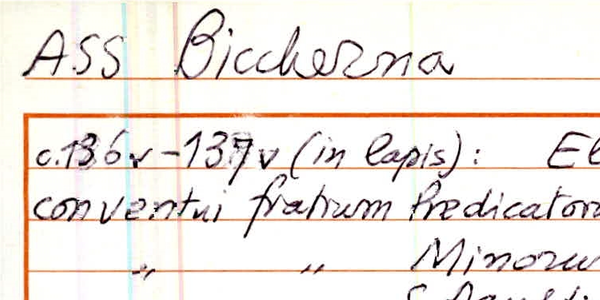 ASS Biccherna
c.136v-137v (in lapis): El
conventui fratrum Predicator
" " Minoru
S.